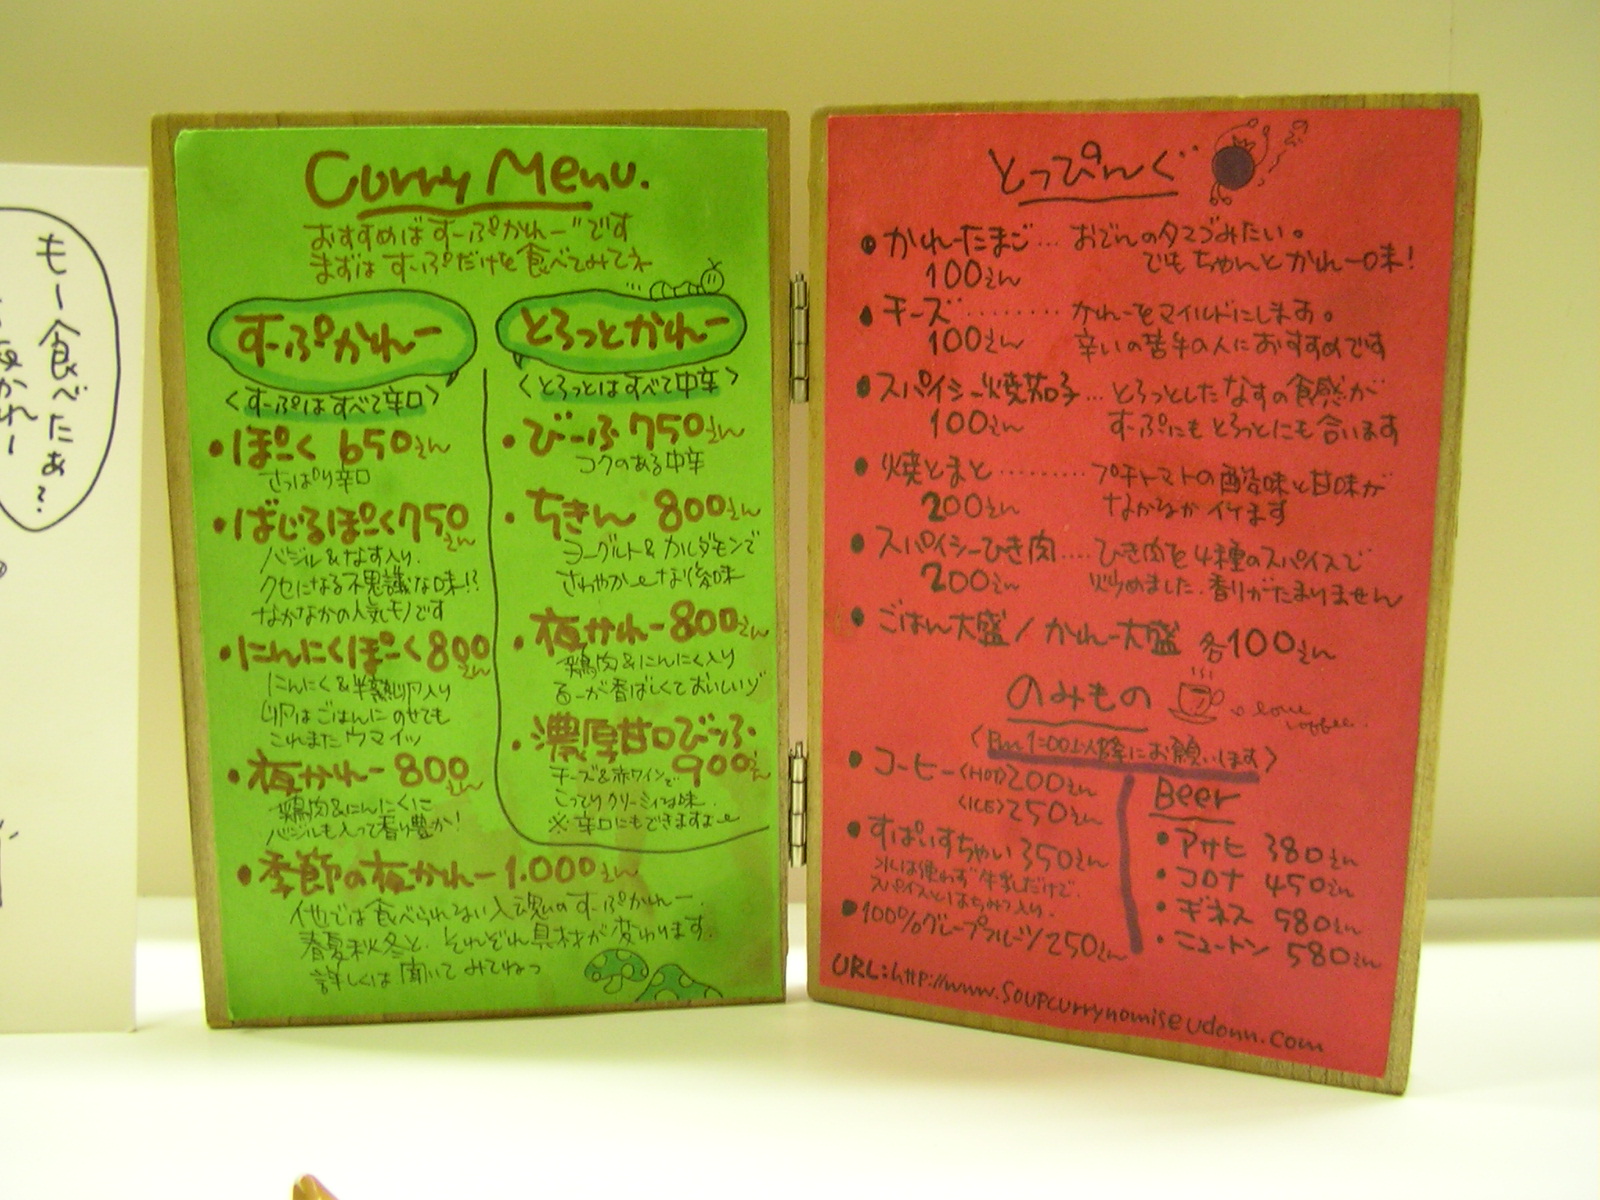 Curry Menu.
おすすめはすーぷかれーです
まずはすーぷだけを食べてみてネ
すーぷかれー
<すーぷはすべて辛口>
・ぽーく 650えん
さっぱり辛口
・ばじるぽーく750えん
バジル&なす入り.
クセになる不思議な味!?
なかなかの人気モノです
・にんにくぽーく800えん
にんにく&半熟卵入り
卵はごはんにのせても
これまたウマイッ
・夜かれー800えん
鶏肉&にんにくに
バジルも入って香り豊か!
とろっとかれー
<とろっとはすべて中辛>
・びーふ750えん
コクのある中辛
・ちきん 800えん
ヨーグルト&カルダモンで
さわやかーな後味
・夜かれー800えん
鶏肉&にんにく入り
るーが香ばしくておいしいゾ
・濃厚甘口びーふ
900えん
チーズ&赤ワインで
こってりクリーミィな味.
※辛口にもできますよー
・季節の夜かれー1.000えん
他では食べられない入魂のすーぷかれー.
春夏秋冬と、それぞれ具材が変わります.
詳しくは聞いてみてねっ
とっぴんぐ
・かれーたまご…おでんのタマゴみたい。
100えん でもちゃんとかれー味!
・チーズ………かれーをマイルドにします。
100えん 辛いの苦手の人におすすめです
・スパイシー焼茄子…とろっとしたなすの食感が
100えん すーぷにもとろっとにも合います
・焼とまと………プチトマトの酸味と甘味が
200えん なかなかイケます
・スパイシーひき肉….ひき肉を4種のスパイスで
200えん 炒めました.香りがたまりません
・ごはん大盛/かれー大盛 各100えん
のみもの
I love coffee.
<Pm1:00以降にお願いします>
・コーヒー<HOT>200えん
<ICE>250えん
・すぱいすちゃい350えん
水は使わず牛乳だけで.
スパイスとはちみつ入り.
・100%グレープフルーツ250えん
Beer
・アサヒ 380えん
・コロナ 450えん
・ギネス 580えん
・ニュートン 580えん
URL:http://www.soupcurrynomiseudonn.com
もー食べたぁ?
夜かれー